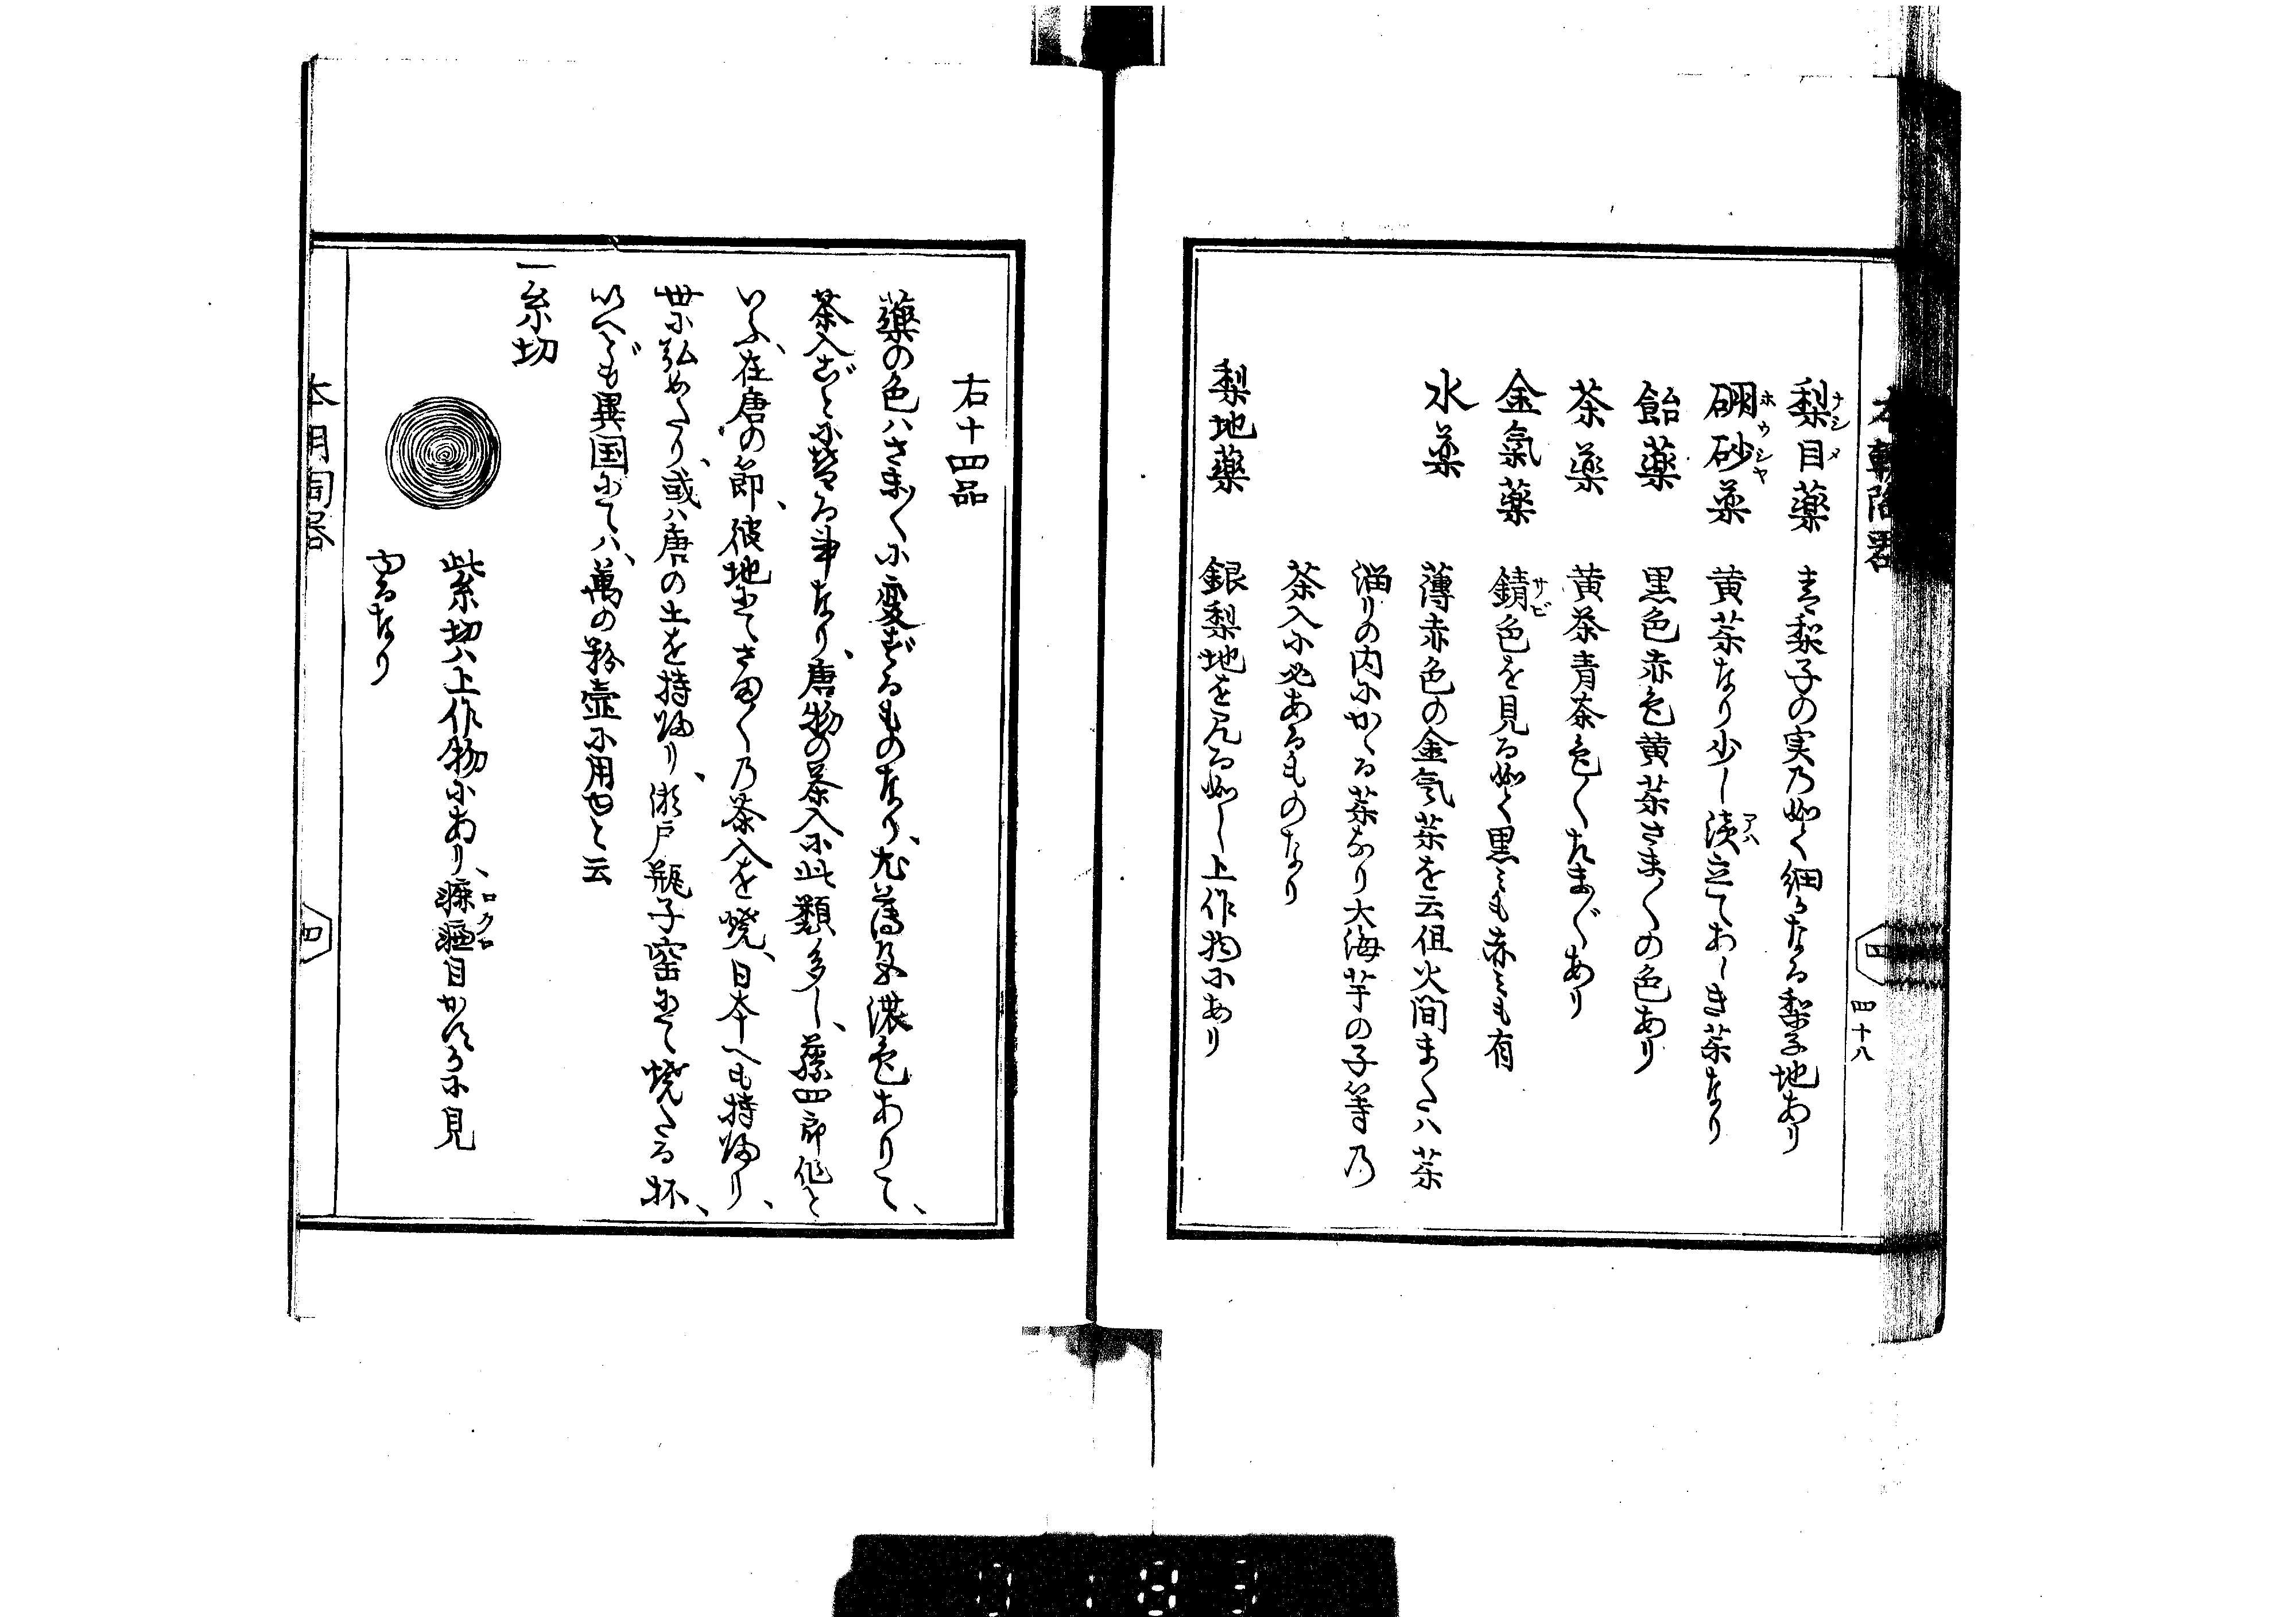 四
四十八
梨目薬 青梨子の実乃如く細かなる梨子地あり
ナシメ
硼砂薬 黄茶なり少し漬立ておしき茶なり
ホウシヤ
アハ
飴薬 黒色赤色黄茶さま〱の色あり
茶薬 黄茶青茶色〱たまぐ〱あり
金氣薬 錆色を見る如く黒ミも赤ミも有
サビ
水薬 薄赤色の金気茶を云但火間またハ茶
溜りの内にかゝる茶なり大海芋の子等乃
茶入に必あるものなり
梨地薬 銀梨地を見る如し上作物にあり
右十四品
薬の色ハさま〲に変ずるものなり、尤薄及濃色ありて、
茶入ごとに替る事なり、唐物の茶入に此類多し、藤四郎作と
いふ、在唐の節、彼地にてさま〱乃茶入を焼、日本へも持帰り、
世に弘めたり、或ハ唐の土を持帰り、瀬戸瓶子窑にて焼たる抔、
いへども異国にてハ、萬の粉壷に用ゆと云
一糸切
此糸切ハ上作物にあり、轆轤目かすかに見
ロクロ
ゆるなり